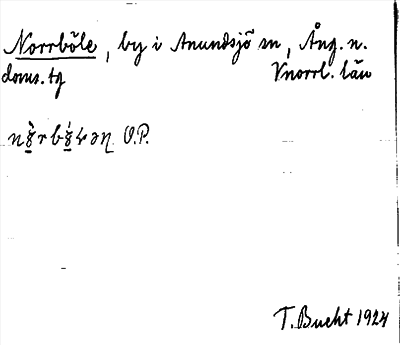 Norrböle, by i Anundsjö sn, Ång. n.
doms. tg Vnorrl. län
O.P.
T. Bucht 1924